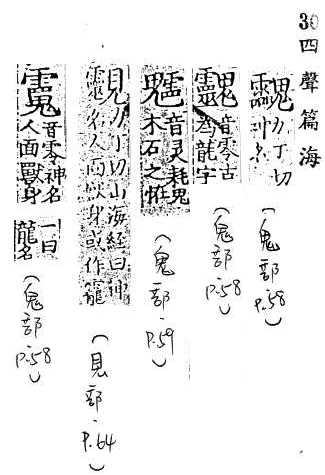 30 四聲篇海
力丁切
神名
(鬼部 p.58)
音零古
龍字
(鬼部 p.58)
音灵耗鬼
木石之恠
(鬼部 p.59)
力丁切山海経曰神
名人面獸身或作
(見部 p.64)
音零神名
人面獸身
一曰
龍名
(鬼部 p.58)